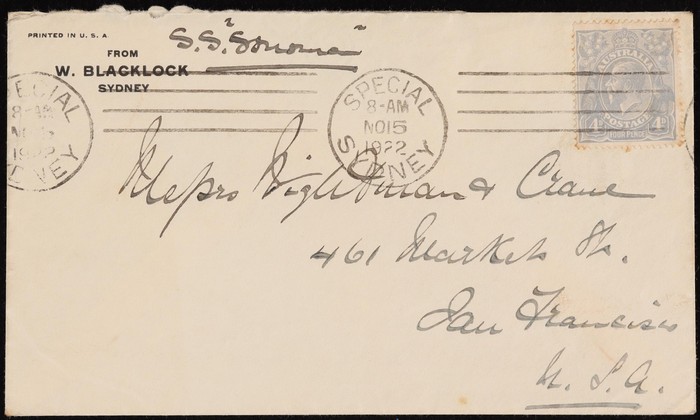 PRINTED IN U.S.A
FROM
W. BLACKLOCK
SYDNEY
S.S. "Sonoma"
SPECIAL
8-AM
NO15
1922
SYDNEY
SPECIAL
8-AM
NO15
1922
SYDNEY
AUSTRALIA
POSTAGE
4D 4D
FOUR PENCE
Messrs Wightman & Crane
461 Market St.
San Francisco
U.S.A.